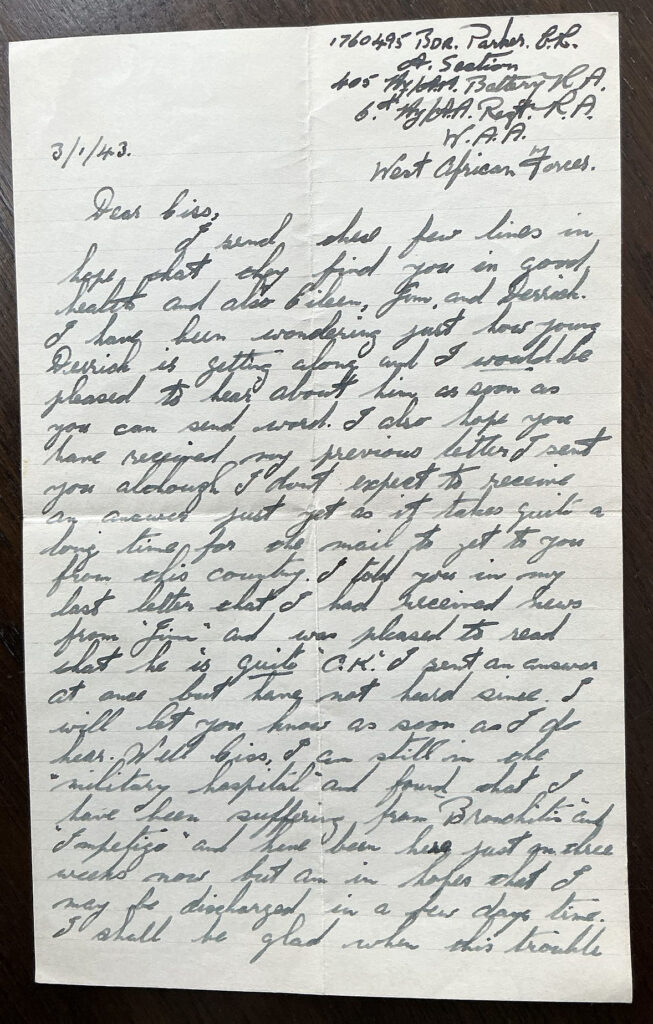 1760495 Bdr. Parker. E.R.
A. Section
405 Hy/A.A. Battery R.A.
6.th Hy/A.A. Regt. R.A.
W.A.A.
West African Forces.
3/1/43.
Dear Ciss,
I send these few lines in
hope that they find you in good
health and also Eileen, Jim, and Derrick.
I have been wondering just how young
Derrick is getting along and I would be
pleased to hear about him as soon as
you can send word. I also hope you
have received my previous letter I sent
you although I dont expect to receive
an answer just yet as it takes quite a
long time for the mail to get to you
from this country. I told you in my
last letter that I had received news
from "Jim" and was pleased to read
that he is quite "O.K." I sent an answer
at once but have not heard since. I
will let you know as soon as I do
hear. Well Ciss, I am still in the
"military hospital" and found that I
have been suffering from "Bronchitis" and
"Impetigo" and have been here just on three
weeks now but am in hopes that I
may be discharged in a few days time.
I shall be glad when this trouble